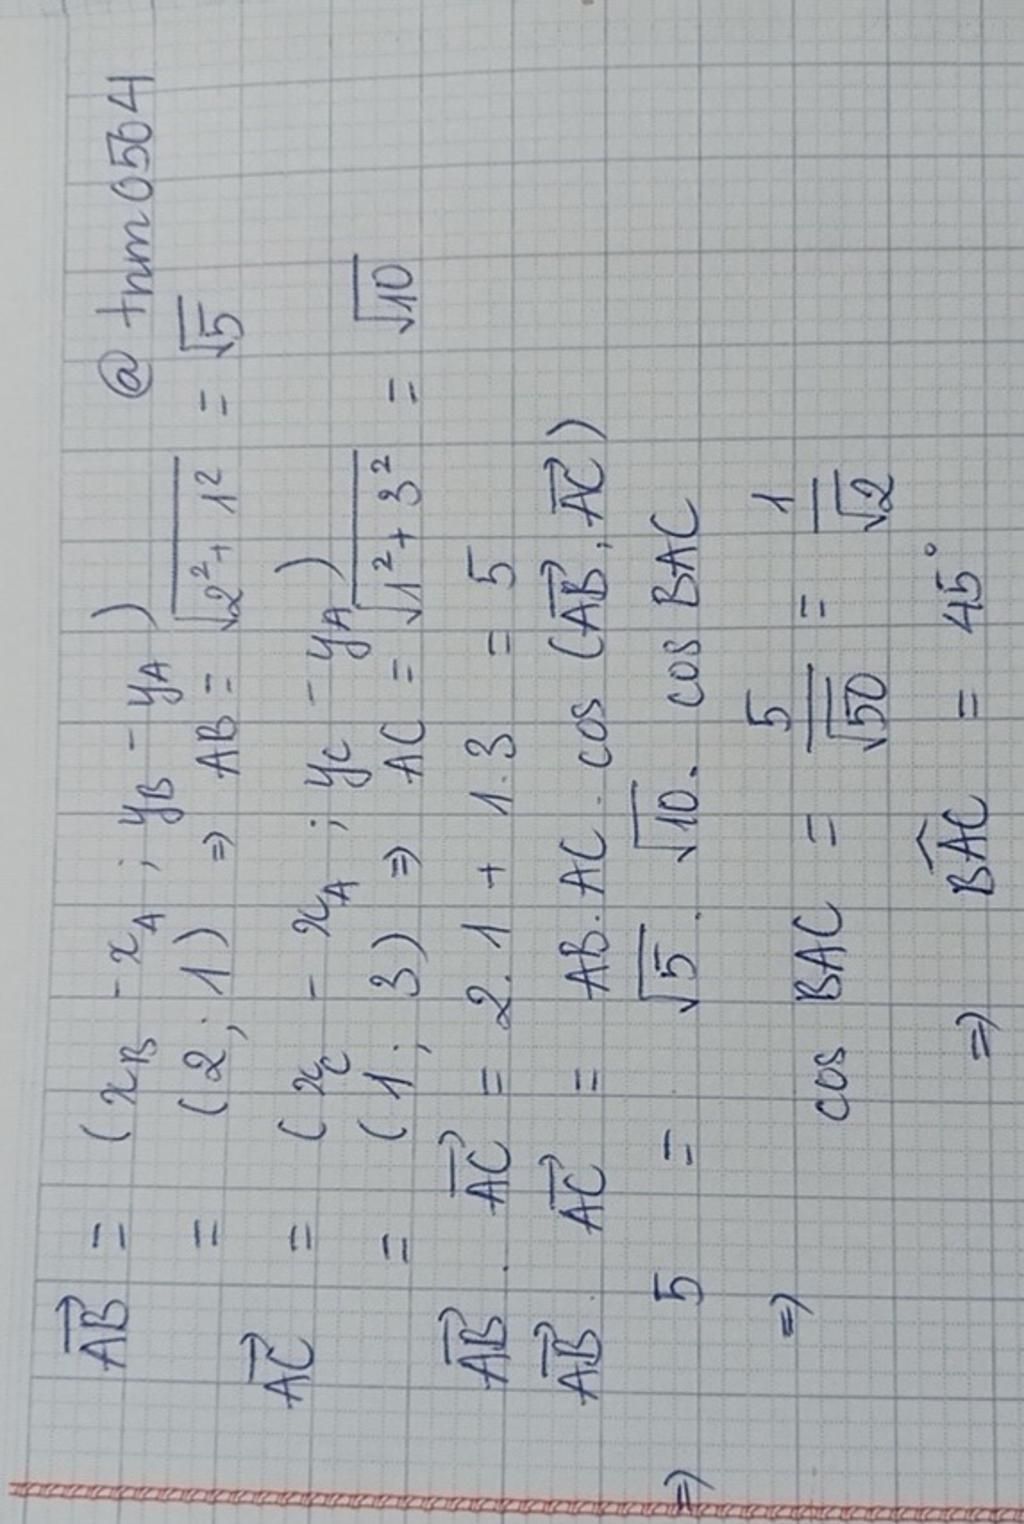 @tnm0564
AB⃗ = (x_B - x_A ; y_B - y_A)
= (2 ; 1) ⇒ AB = √(2² + 1²) = √5
AC⃗ = (x_C - x_A ; y_C - y_A)
= (1 ; 3) ⇒ AC = √(1² + 3²) = √10
AB⃗ . AC⃗ = 2.1 + 1.3 = 5
AB⃗ . AC⃗ = AB.AC.cos (AB⃗, AC⃗)
⇒ 5 = √5 . √10 . cos BAC
⇒ cos BAC = 5/√50 = 1/√2
⇒ BAC^ = 45°